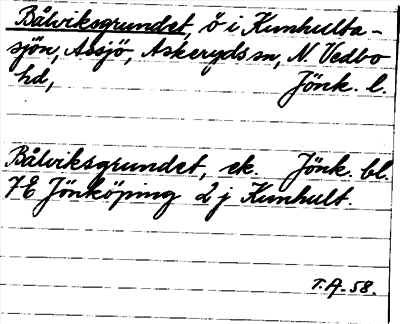 Bålviksgrundet, ö i Kunhulta-
sjön, Assjö, Askeryds sn, N. Vedbo
hd, Jönk. l.
Bålviksgrundet, ek. Jönk. bl.
7E Jönköping 2 j Kunhult.
T.A-58.